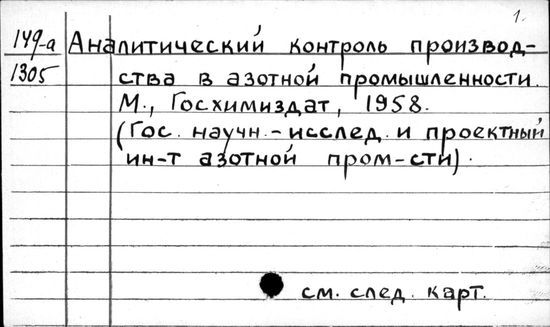 1.
149-а Аналитический контроль производ-
1305 ства в азотной промышленности.
М., Госхимиздат, 1958.
(Гос. научн.-исслед. и проектный
ин-т азотной пром-сти).
см. след. карт.